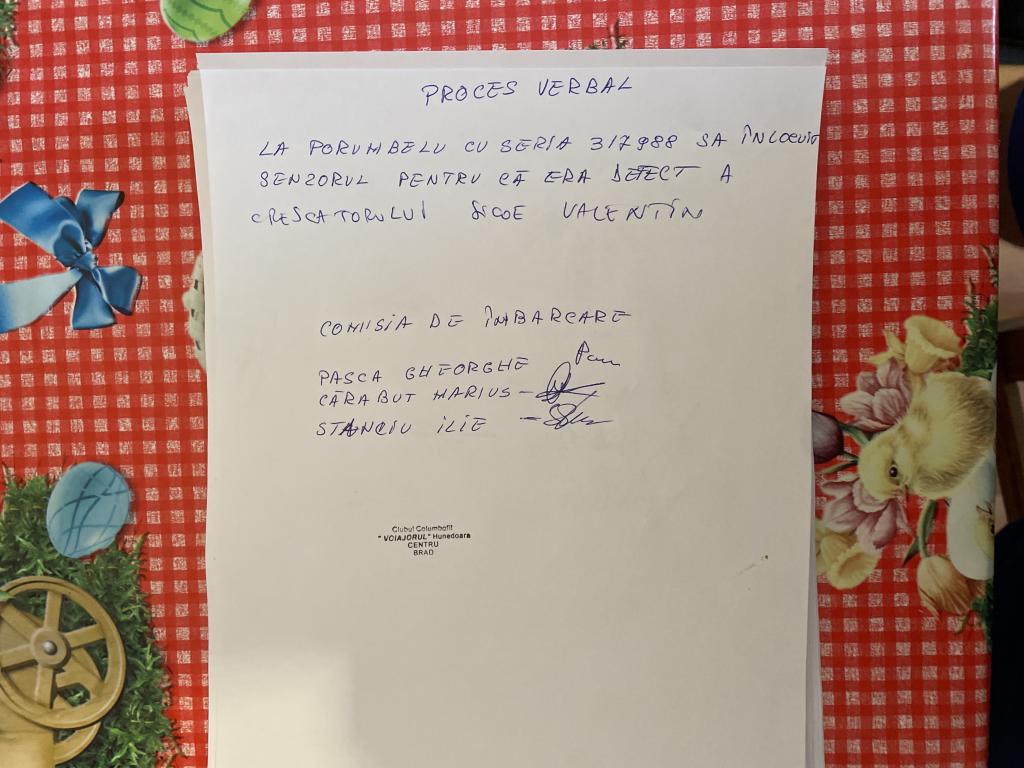 PROCES VERBAL
LA PORUMBELU CU SERIA 317988 SA ÎNLOCUIT
SENZORUL PENTRU CĂ ERA DEFECT A
CRESCATORULUI SICOE VALENTIN
COMISIA DE ÎMBARCARE
PASCA GHEORGHE
CĂRABUT MARIUS -
STANCIU ILIE -
Clubul Columbofil
"VOIAJORUL" Hunedoara
CENTRU
BRAD